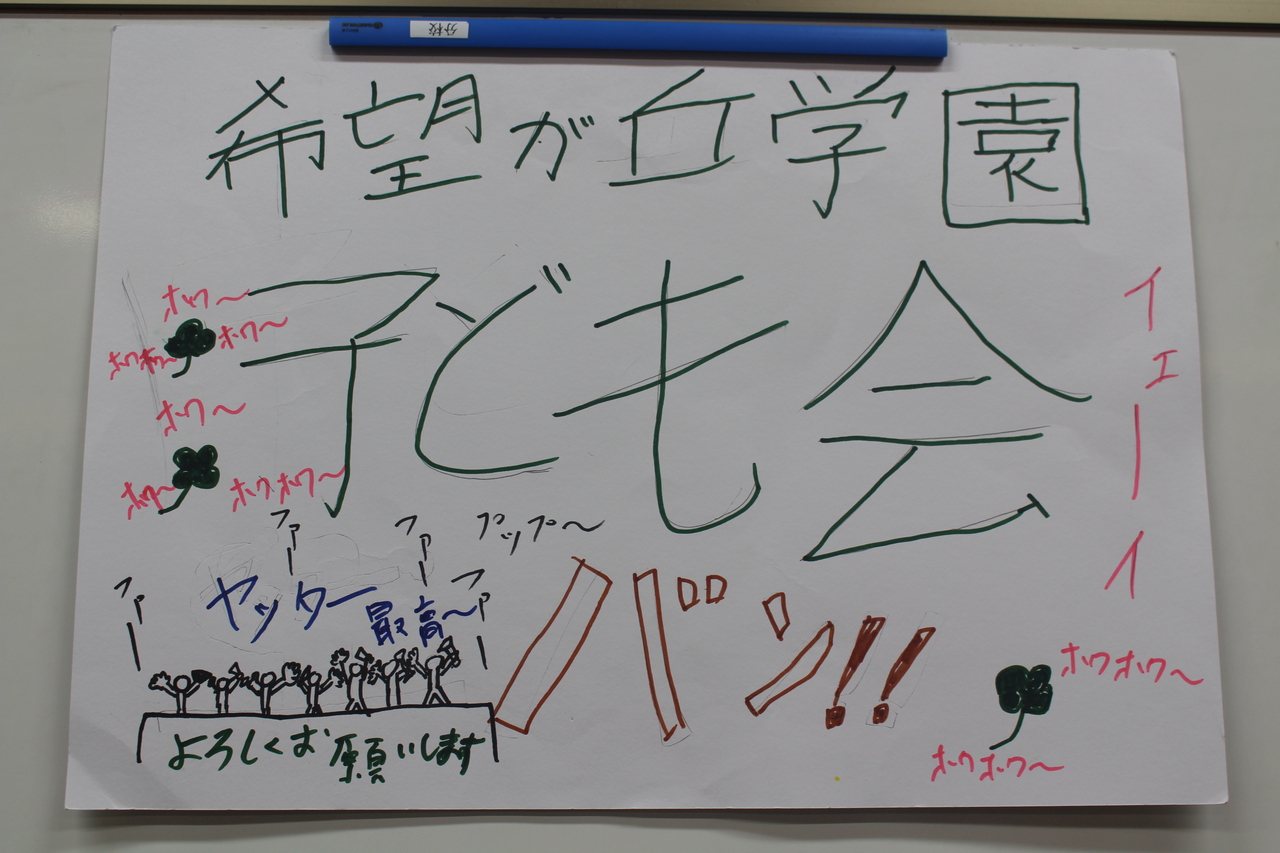 分校
希望が丘学園
子ども会
ホワ～
ホワ～
ホワホワ～
ホワ～
ホワ～
ホワホワ～
イェーイ
ファー
ファー
プップ～
ファー
ファー
ヤッター
最高～
バン!!
よろしくお願いします
ホワホワ～
ホワホワ～